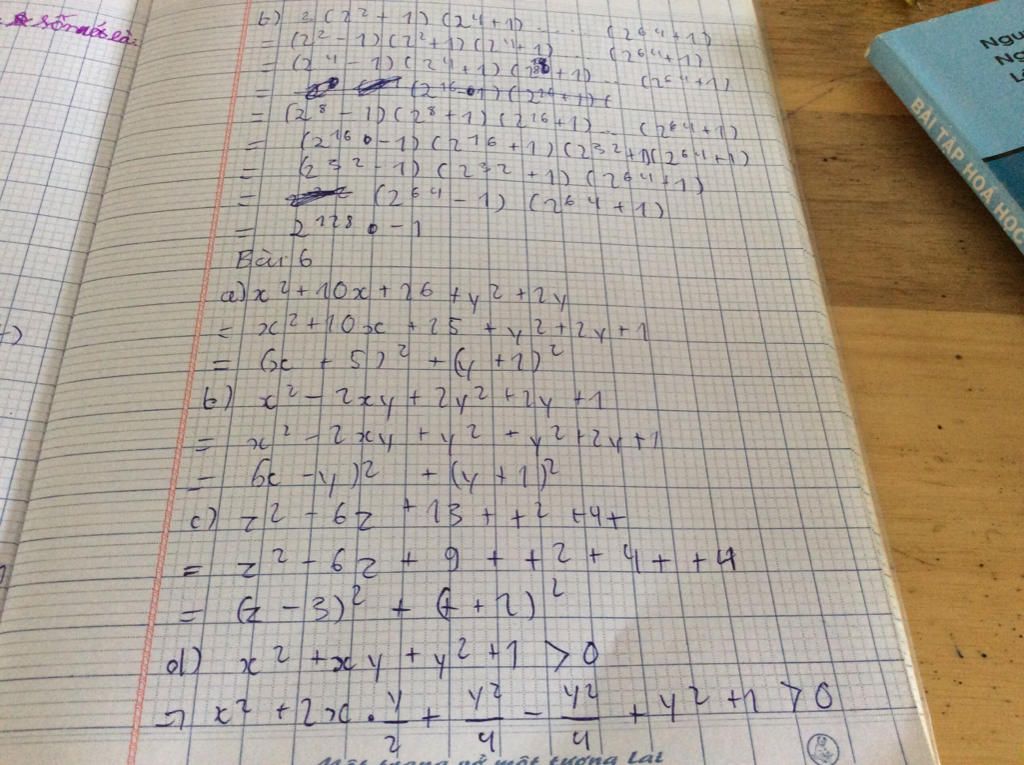 số nét là
b) 3(2² + 1)(2⁴+1) ... (2⁶⁴+1)
= (2² – 1)(2²+1)(2⁴+1) ... (2⁶⁴+1)
= (2⁴ – 1)(2⁴+1)(2⁸+1) ... (2⁶⁴+1)
=
= (2⁸ – 1)(2⁸+1)(2¹⁶+1) ... (2⁶⁴+1)
= (2¹⁶ – 1)(2¹⁶+1)(2³²+1)(2⁶⁴+1)
= (2³² – 1)(2³²+1)(2⁶⁴+1)
= (2⁶⁴ – 1)(2⁶⁴+1)
= 2¹²⁸ – 1
Bài 6
a) x² + 10x + 26 + y² + 2y
= x² + 10x + 25 + y² + 2y + 1
= (x + 5)² + (y + 1)²
b) x² – 2xy + 2y² + 2y + 1
= x² – 2xy + y² + y² + 2y + 1
= (x – y)² + (y + 1)²
c) z² – 6z + 13 + t² + 4t
= z² – 6z + 9 + t² + 4t + 4
= (z – 3)² + (t + 2)²
d) x² + xy + y² + 1 > 0
=> x² + 2x · y/2 + y²/4 – y²/4 + y² + 1 > 0
BÀI TẬP HOÁ HỌC